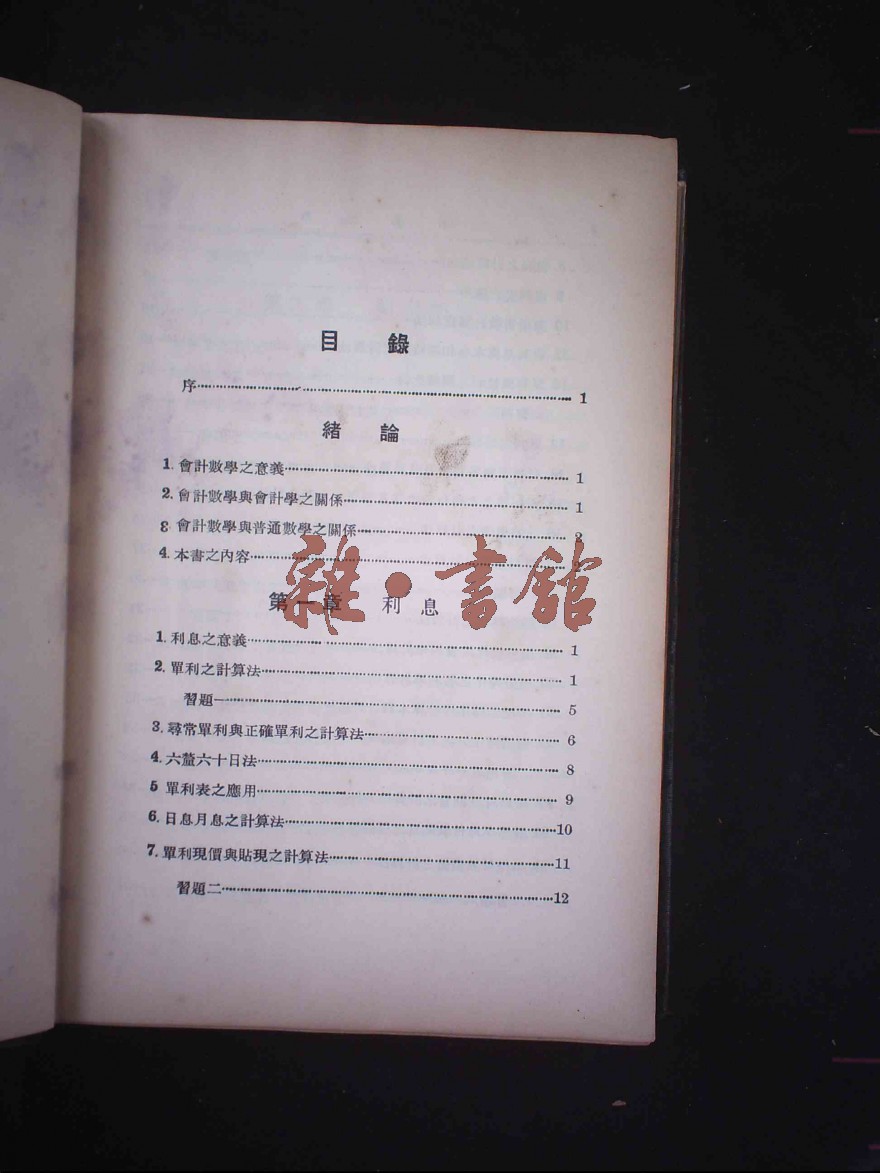 目 錄
序 1
緒 論
1. 會計數學之意義 1
2. 會計數學與會計學之關係 1
3. 會計數學與普通數學之關係 2
4. 本書之內容
雜·書館
第一章 利息
1. 利息之意義 1
2. 單利之計算法 1
習題一 5
3. 尋常單利與正確單利之計算法 6
4. 六釐六十日法 8
5 單利表之應用 9
6. 日息月息之計算法 10
7. 單利現價與貼現之計算法 11
習題二 12